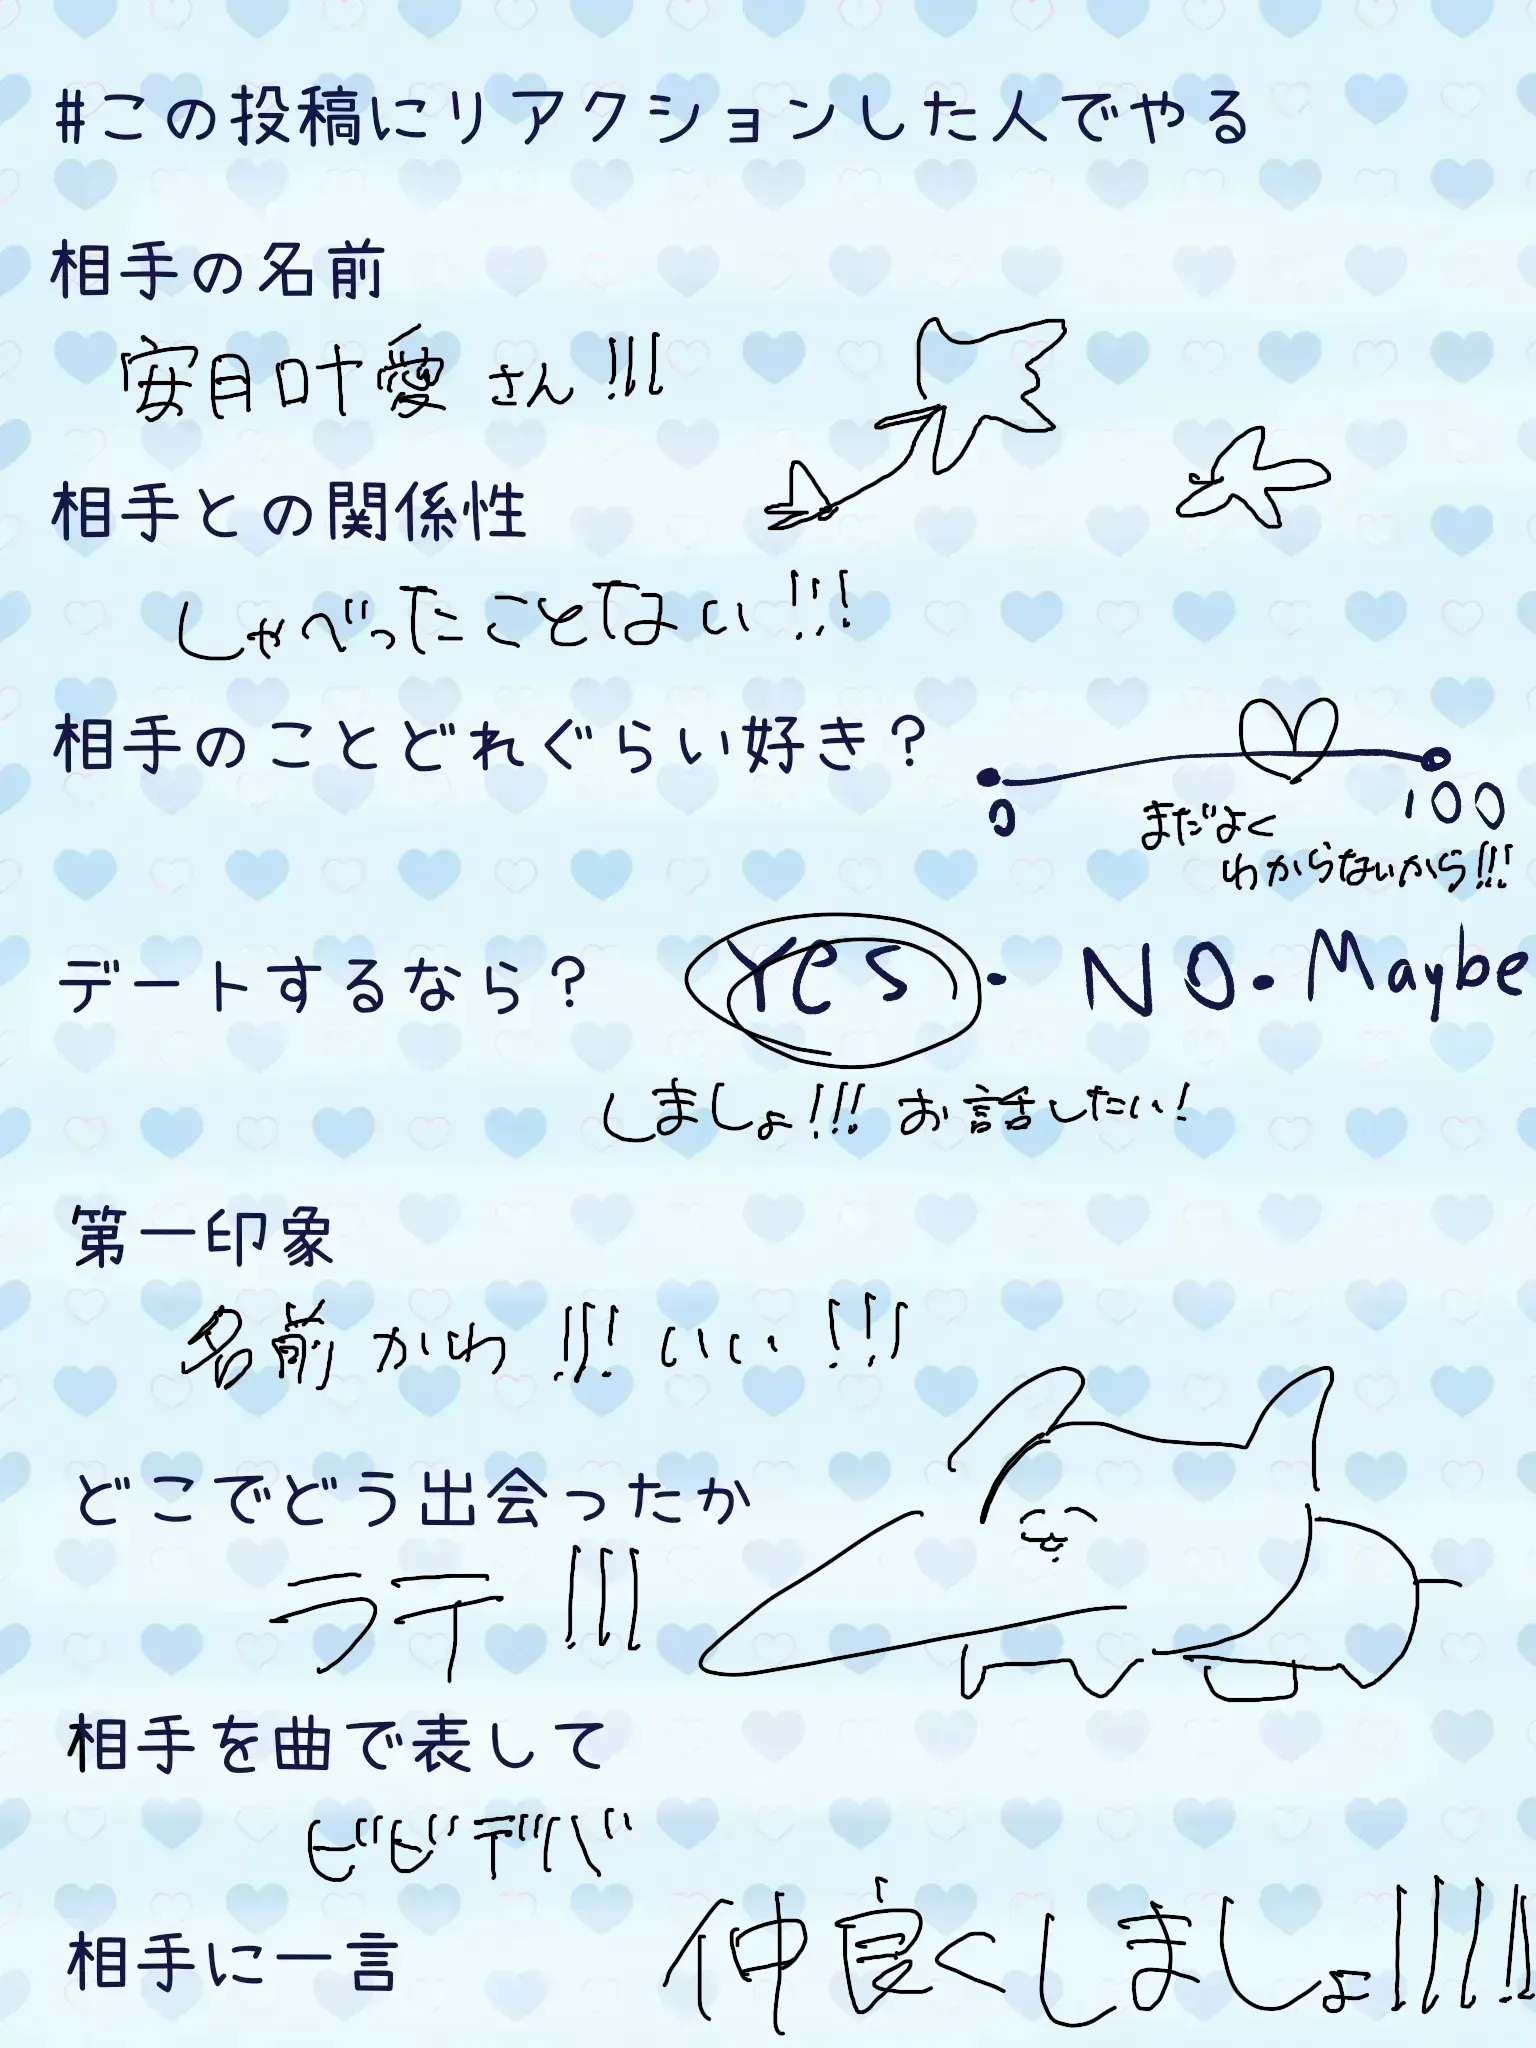 #この投稿にリアクションした人でやる
相手の名前
安月叶愛さん!!!
相手との関係性
しゃべったことない!!!
相手のことどれぐらい好き?
0
100
まだよく
わからないから!!!
デートするなら?
Yes・NO・Maybe
しましょ!!!お話したい!
第一印象
名前かわ!!!いい!!!
どこでどう出会ったか
ラテ!!!
相手を曲で表して
ビビデバ
相手に一言
仲良くしましょ!!!!